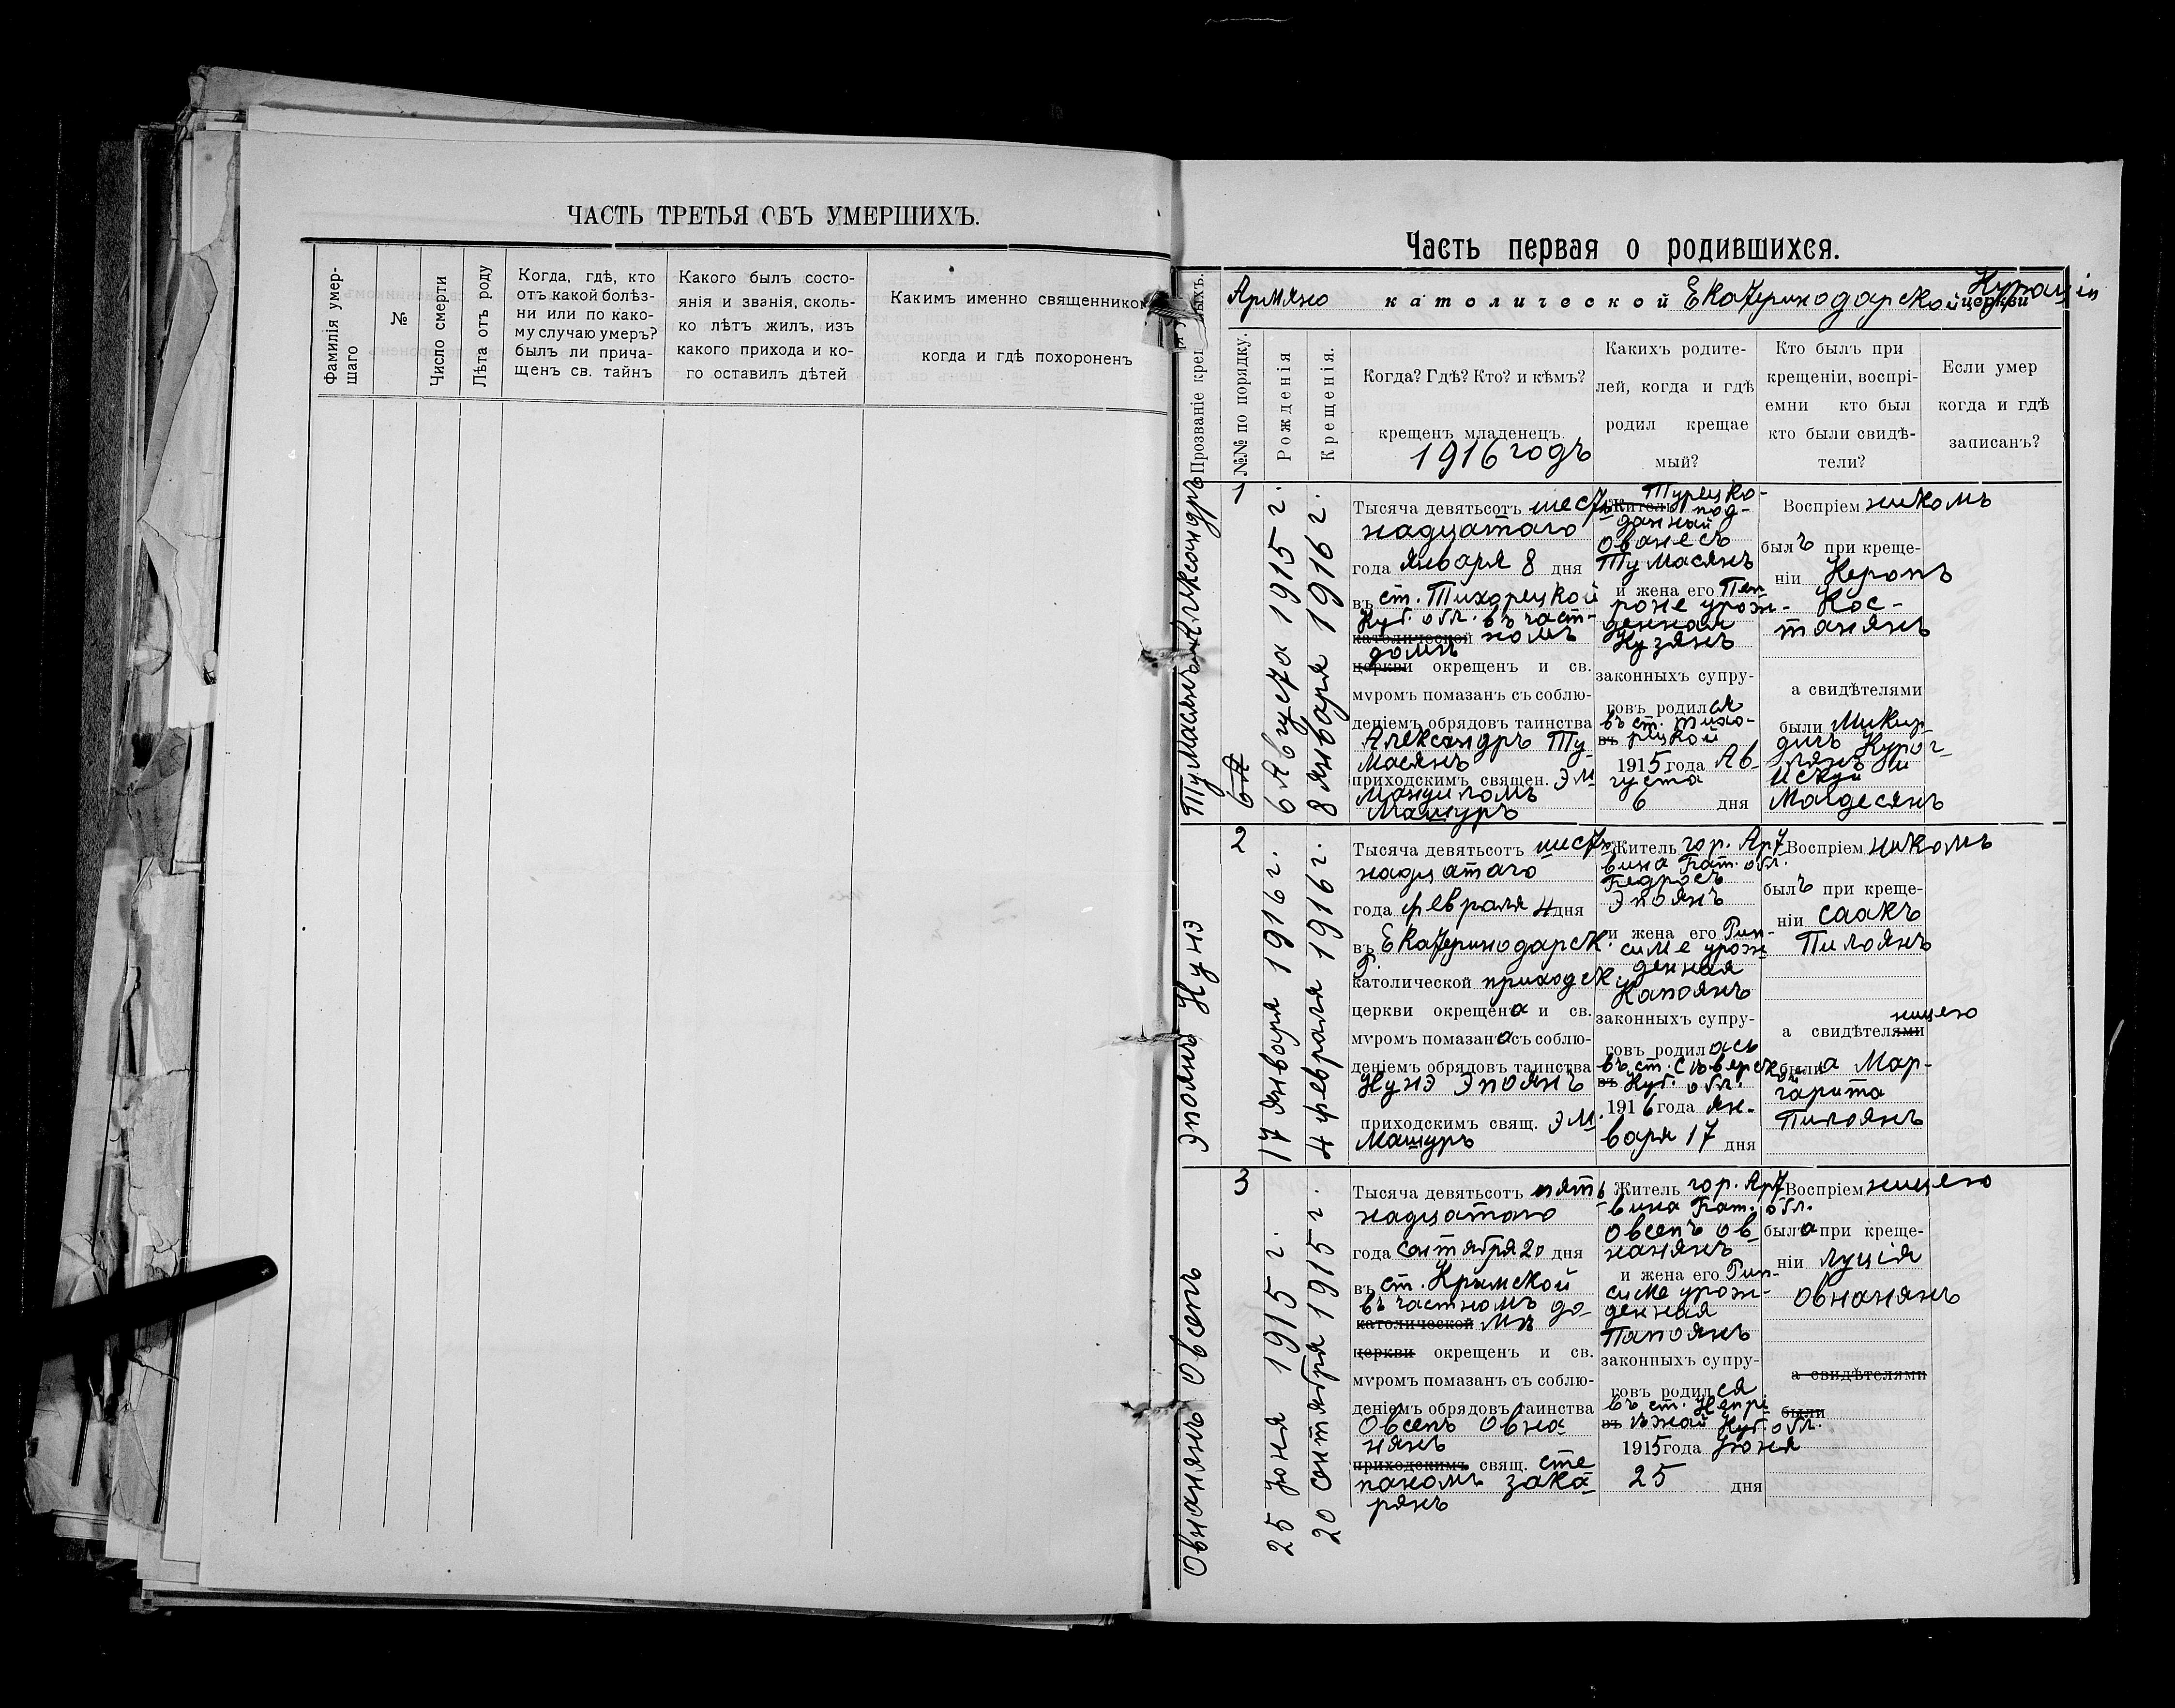 ЧАСТЬ ТРЕТЬЯ ОБЪ УМЕРШИХЪ.
Фамилія умер-
шаго
№
Число смерти
Лѣта отъ роду
Когда, гдѣ, кто
отъ какой болѣз-
ни или по како-
му случаю умеръ?
былъ ли прича-
щенъ св. тайнъ
Какого былъ состо-
янія и званія, сколь-
ко лѣтъ жилъ, изъ
какого прихода и ко-
го оставилъ дѣтей
Какимъ именно священником
когда и гдѣ похороненъ
Часть первая о родившихся.
Армяно католической Екатеринодарской церкви Курацiи
Прозваніе крещ ныхъ.
№№ по порядку.
Рожденія
Крещенія.
Когда? Гдѣ? Кто? и кѣмъ?
крещенъ младенецъ.
1916 годъ
Какихъ родите-
лей, когда и гдѣ
родил крещае
мый?
Кто былъ при
крещеніи, воспрі-
емни кто был
кто были свидѣ-
тели?
Если умер
когда и гдѣ
записанъ?
Тумасянъ Александръ
1
6 Августа 1915 г.
8 января 1916 г.
Тысяча девятьсотъ шест
надцатаго
года января 8 дня
въ ст. Тихорецкой
Куб. обл. въ част-
католической номъ
домѣ
церкви окрещенъ и св.
мѵромъ помазанъ съ соблю-
деніемъ обрядовъ таинства
Александръ Ту-
масянъ
приходскимъ священ. Эм
Мануиломъ
Машуръ
Турецко-
Житель под-
данный
Ованесъ
Тумасянъ
и жена его Пеп-
роне урож-
денная
Кузянъ
законныхъ супру-
говъ родился
въ ст. Тихо-
въ рецкой
1915 года Ав-
густа
6 дня
Воспріем никомъ
былъ при креще-
ніи Керопъ
Кос-
танянъ
а свидѣтелями
были Мкир-
дичъ Курог-
лянъ и
Искуи
Магдесянъ
Эпоянъ Нунэ
2
17 января 1916 г.
4 февраля 1916 г.
Тысяча девятьсотъ шест
надцатаго
года февраля 4 дня
въ Екатеринодарск.
католической приходск.
церкви окрещена и св.
мѵромъ помазана съ соблю-
деніемъ обрядовъ таинства
Нунэ Эпоянъ
приходскимъ свящ. Эм.
Машуръ
Житель гор. Арт-
вина Бат. обл.
Бедросъ
Эпоянъ
и жена его Рип-
симе урож-
денная
Капоянъ
законныхъ супру-
говъ родилась
въ ст. Сѣверской
въ Куб. обл.
1916 года ян-
варя 17 дня
Воспріем никомъ
былъ при креще-
ніи Саакъ
Пилоянъ
а свидѣтелями ницею
были а Мар-
гарита
Пилоянъ
Овнанянъ Овсепъ
3
25 июня 1915 г.
20 сентября 1915 г.
Тысяча девятьсотъ пят
надцатаго
года сентября 20 дня
въ ст. Крымской
въ частномъ до-
католической мѣ
церкви окрещенъ и св.
мѵромъ помазанъ съ соблю-
деніемъ обрядовъ таинства
Овсепъ Овна-
нянъ
приходскимъ свящ. Сте
паномъ Зака-
рянъ
Житель гор. Арт-
вина Бат. обл.
Овсепъ Ов-
нанянъ
и жена его Рип-
симе урож-
денная
Папоянъ
законныхъ супру-
говъ родился
въ ст.
въ Куб. обл.
1915 года июня
25 дня
Воспріем ницею
была при креще-
ніи Луція
Овнанянъ
а свидѣтелями
были